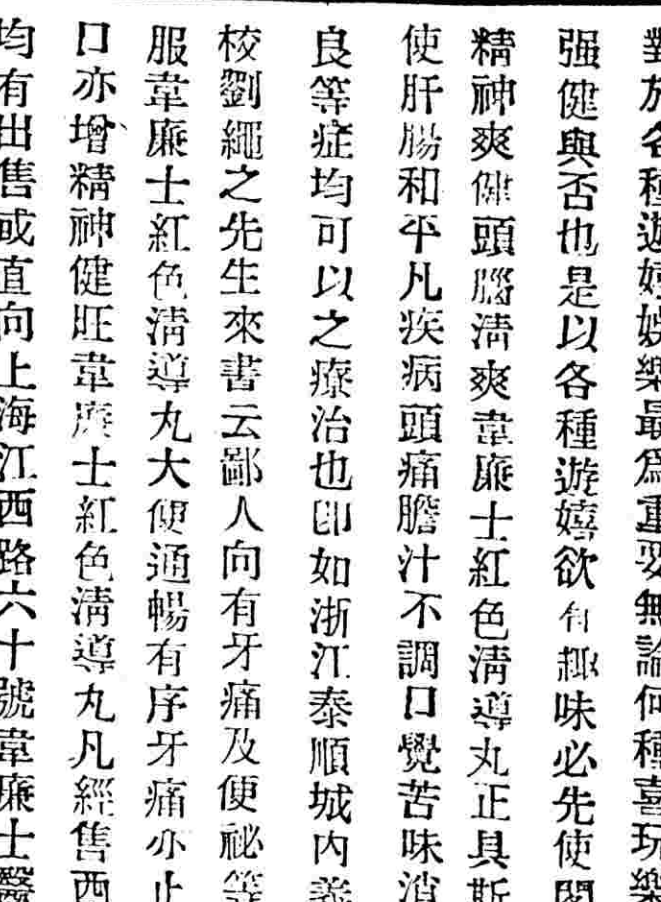 對於各種遊嬉娛樂最爲重要無論何種喜玩樂
强健與否也是以各種遊嬉欲有趣味必先使閣
精神爽健頭腦淸爽韋廉士紅色淸導丸正具斯
使肝腸和平凡疾病頭痛膽汁不調口覺苦味消
良等症均可以之療治也卽如浙江泰順城內義
校劉繩之先生來書云鄙人向有牙痛及便祕等
服韋廉士紅色淸導丸大便通暢有序牙痛亦止
口亦增精神健旺韋廉士紅色淸導丸凡經售西
均有出售或直向上海江西路六十號韋廉士醫